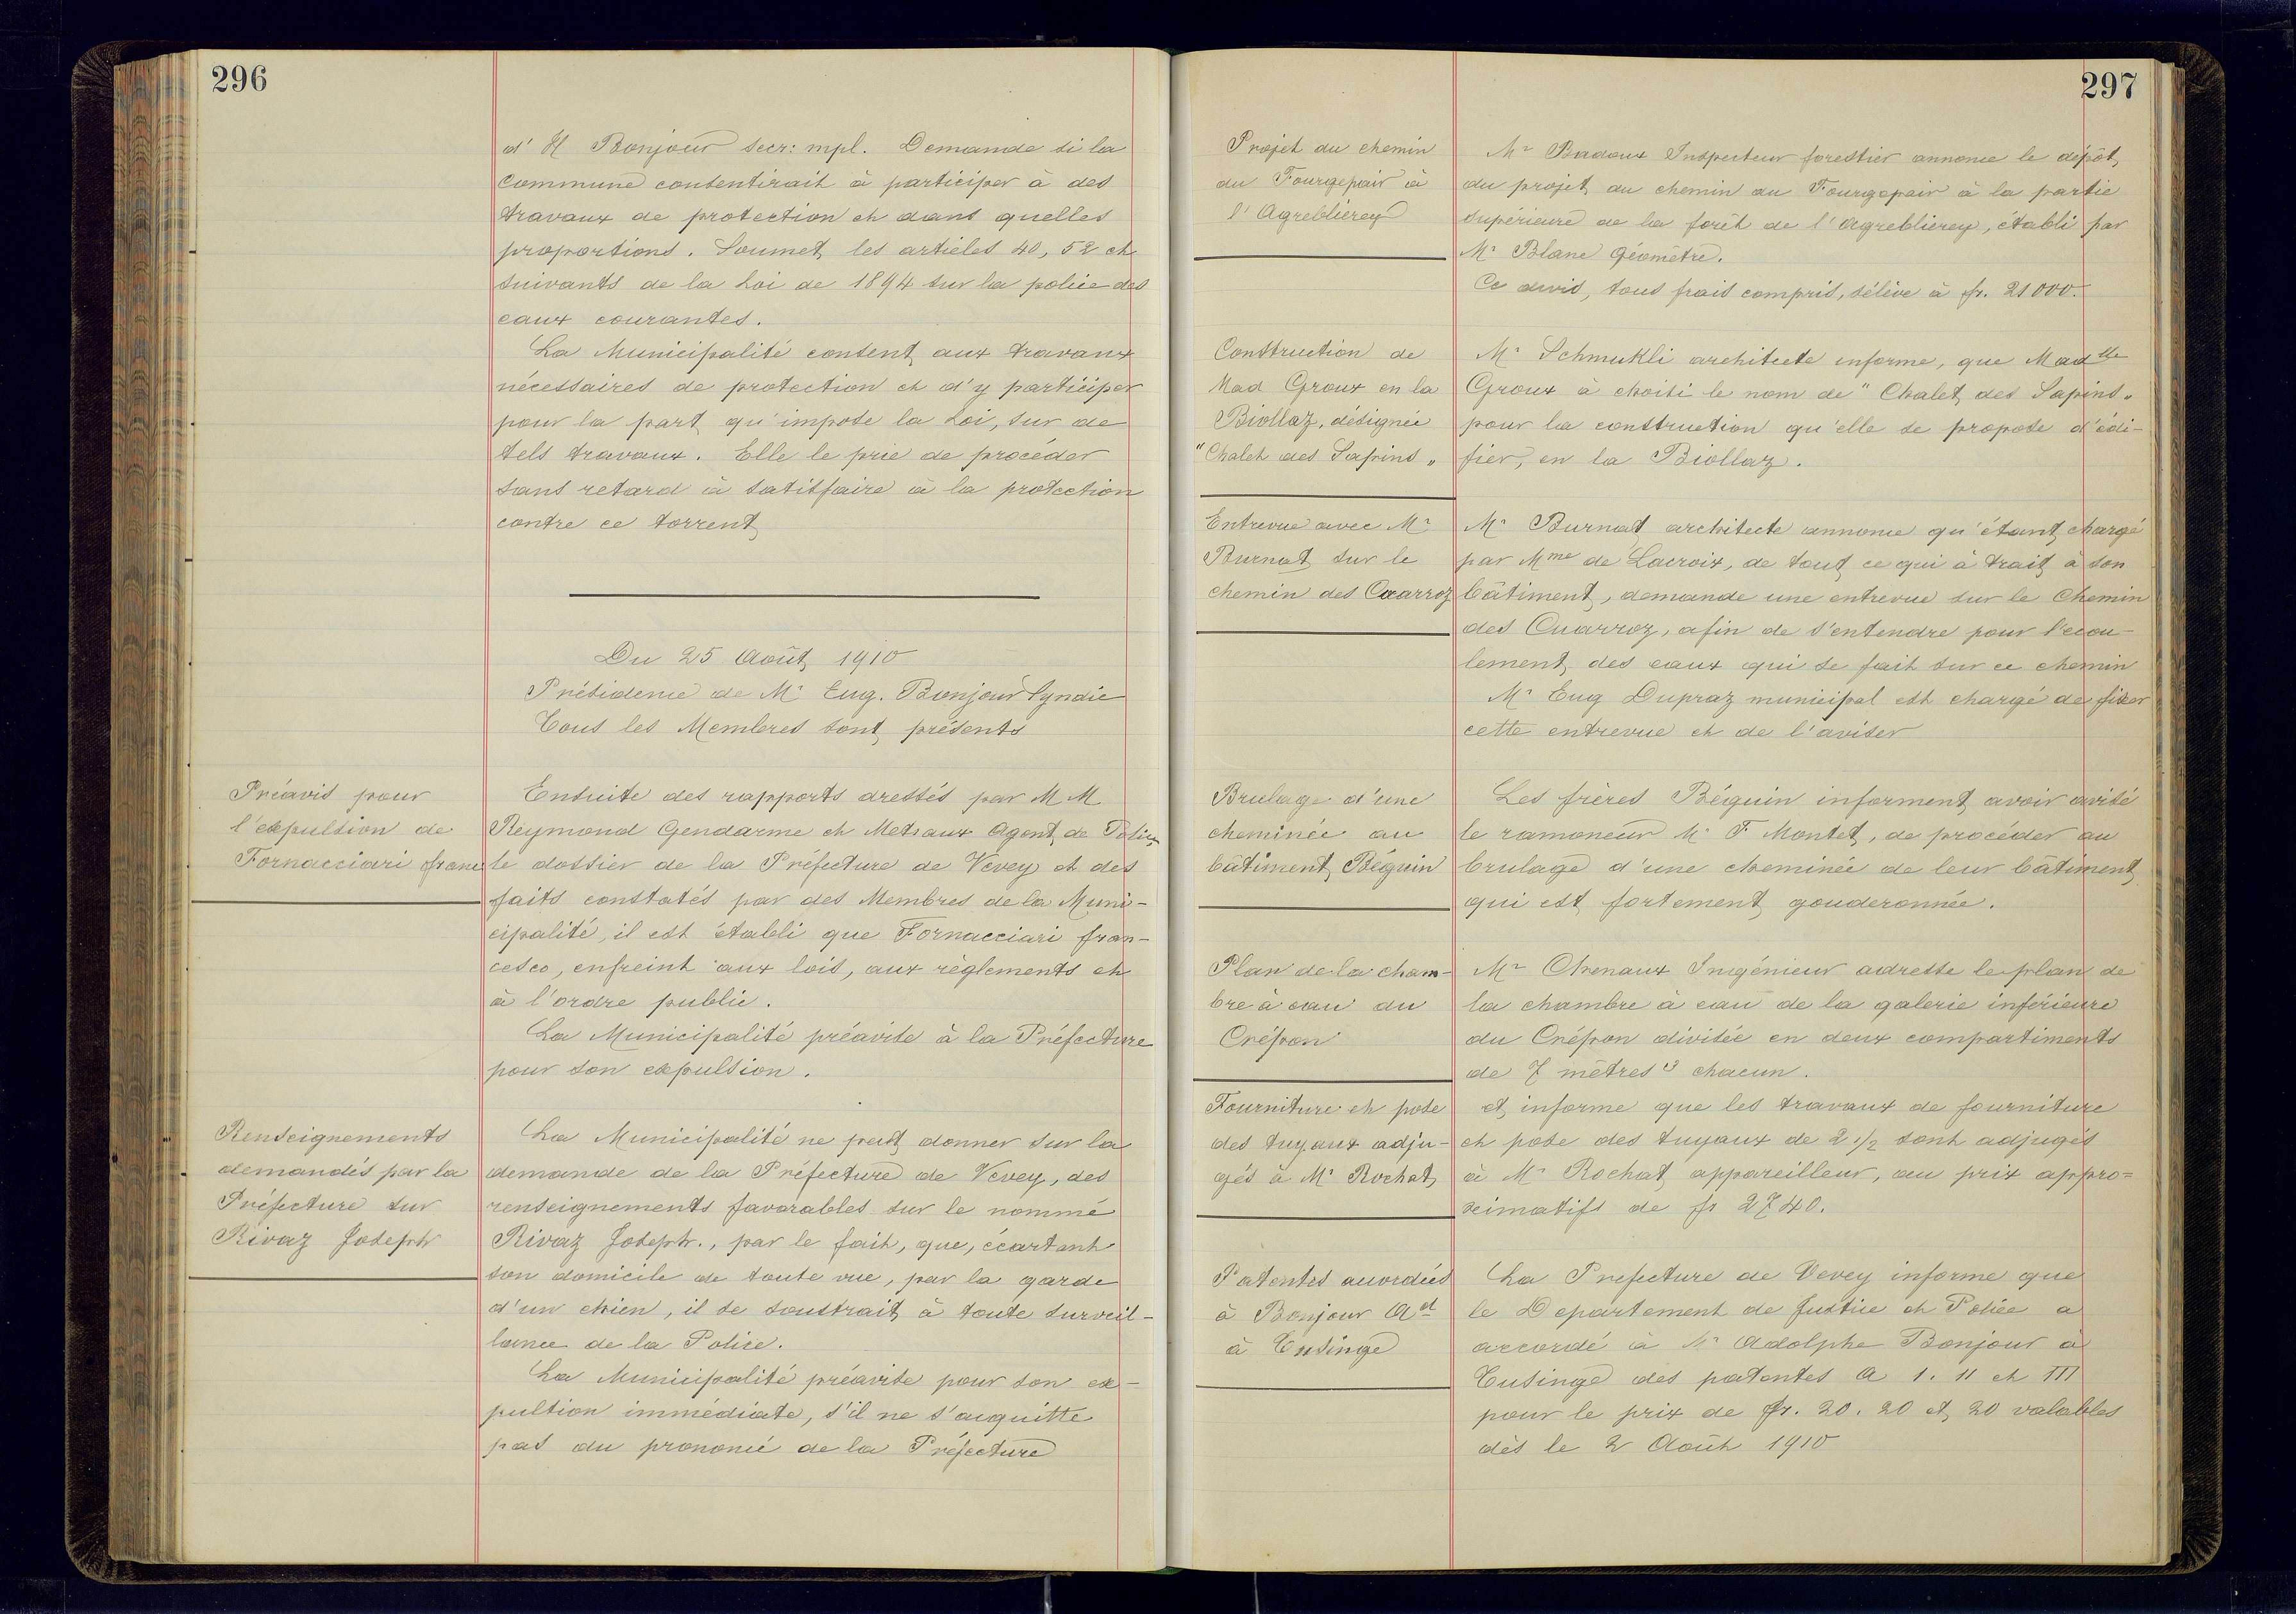 296
d' H Bonjour secr: mpl. Demande si la
Commune consentirait à participer à des
travaux de protection et dans quelles
proportions. Soumet les articles 40, 52 et
suivants de la Loi de 1894 sur la police des
eaux courantes.
La Municipalité consent aux travaux
nécessaires de protection et d'y participer
pour la part qu'impose la Loi, sur de
tels travaux. Elle le prie de procéder
sans retard à satisfaire à la protection
contre ce torrent
Du 25 Août 1910
Présidence de Mr Eug. Bonjour Syndic
Tous les Membres sont présents
Préavis pour
l'expulsion de
Fornacciari franc
Ensuite des rapports dressés par M M
Reymond Gendarme et Metraux Agent de Police
le dossier de la Préfecture de Vevey et des
faits constatés par des Membres de la Muni-
cipalité, il est établi que Fornacciari fran-
cesco, enfreint aux lois, aux règlements et
à l'ordre public.
La Municipalité préavise à la Préfecture
pour son expulsion.
Renseignements
demandés par la
Préfecture sur
Rivaz Joseph
La Municipalité ne peut donner sur la
demande de la Préfecture de Vevey, des
renseignements favorables sur le nommé
Rivaz Joseph., par le fait, que, écartant
son domicile de toute vue, par la garde
d'un chien, il se soustrait à toute surveil-
lance de la Police.
La Municipalité préavise pour son ex-
pultion immédiate, s'il ne s'acquitte
pas du prononcé de la Préfecture
297
Projet du chemin
du Fourgepair à
l'Agreblierey
Mr Badoux Inspecteur forestier annonce le dépôt
du projet du chemin du Fourgepair à la partie
supérieure de la forêt de l'Agreblierey, établi par
Mr Blanc Géomètre.
Ce devis, tous frais compris, s'élève à fr. 21000.-
Construction de
Mad Groux en la
Biollaz, désignée
"Chalet des Sapins"
Mr Schmukli architecte informe, que Madelle
Groux à choisi le nom de "Chalet des Sapins"
pour la construction qu'elle se propose d'édi-
fier, en la Biollaz.
Entrevue avec Mr
Burnat sur le
chemin des Cuarroz
Mr Burnat architecte annonce qu'étant chargé
par Mme de Lacroix, de tout ce qui à trait à son
bâtiment, demande une entrevue sur le Chemin
des Cuarroz, afin de s'entendre pour l'ecou-
lement des eaux qui se fait sur ce chemin
Mr Eug Dupraz municipal est chargé de fixer
cette entrevue et de l'aviser
Brulage d'une
cheminée au
bâtiment Béguin
Les frères Béguin informent avoir avisé
le ramoneur Mr F. Montet, de procéder au
brulage d'une cheminée de leur bâtiment
qui est fortement gouderonnée.
Plan de la cham-
bre à eau du
Crépon
Mr Chenaux Ingénieur adresse le plan de
la chambre à eau de la galerie inférieure
du Crépon divisée en deux compartiments
de 7 mètres3 chacun.
Fourniture et pose
des tuyaux adju-
gés à Mr Rochat
et informe que les travaux de fourniture
et pose des tuyaux de 2 1/2 sont adjugés
à Mr Rochat appareilleur, au prix appro=
ximatifs de fr 2740.
Patentes accordées
à Bonjour Ad
à Tusinge
La Prefecture de Vevey informe que
le Departement de Justice et Police a
accordé à Mr Adolphe Bonjour à
Tusinge des patentes A I. II et III
pour le prix de fr. 20. 20 et 20 valables
dès le 2 Août 1910